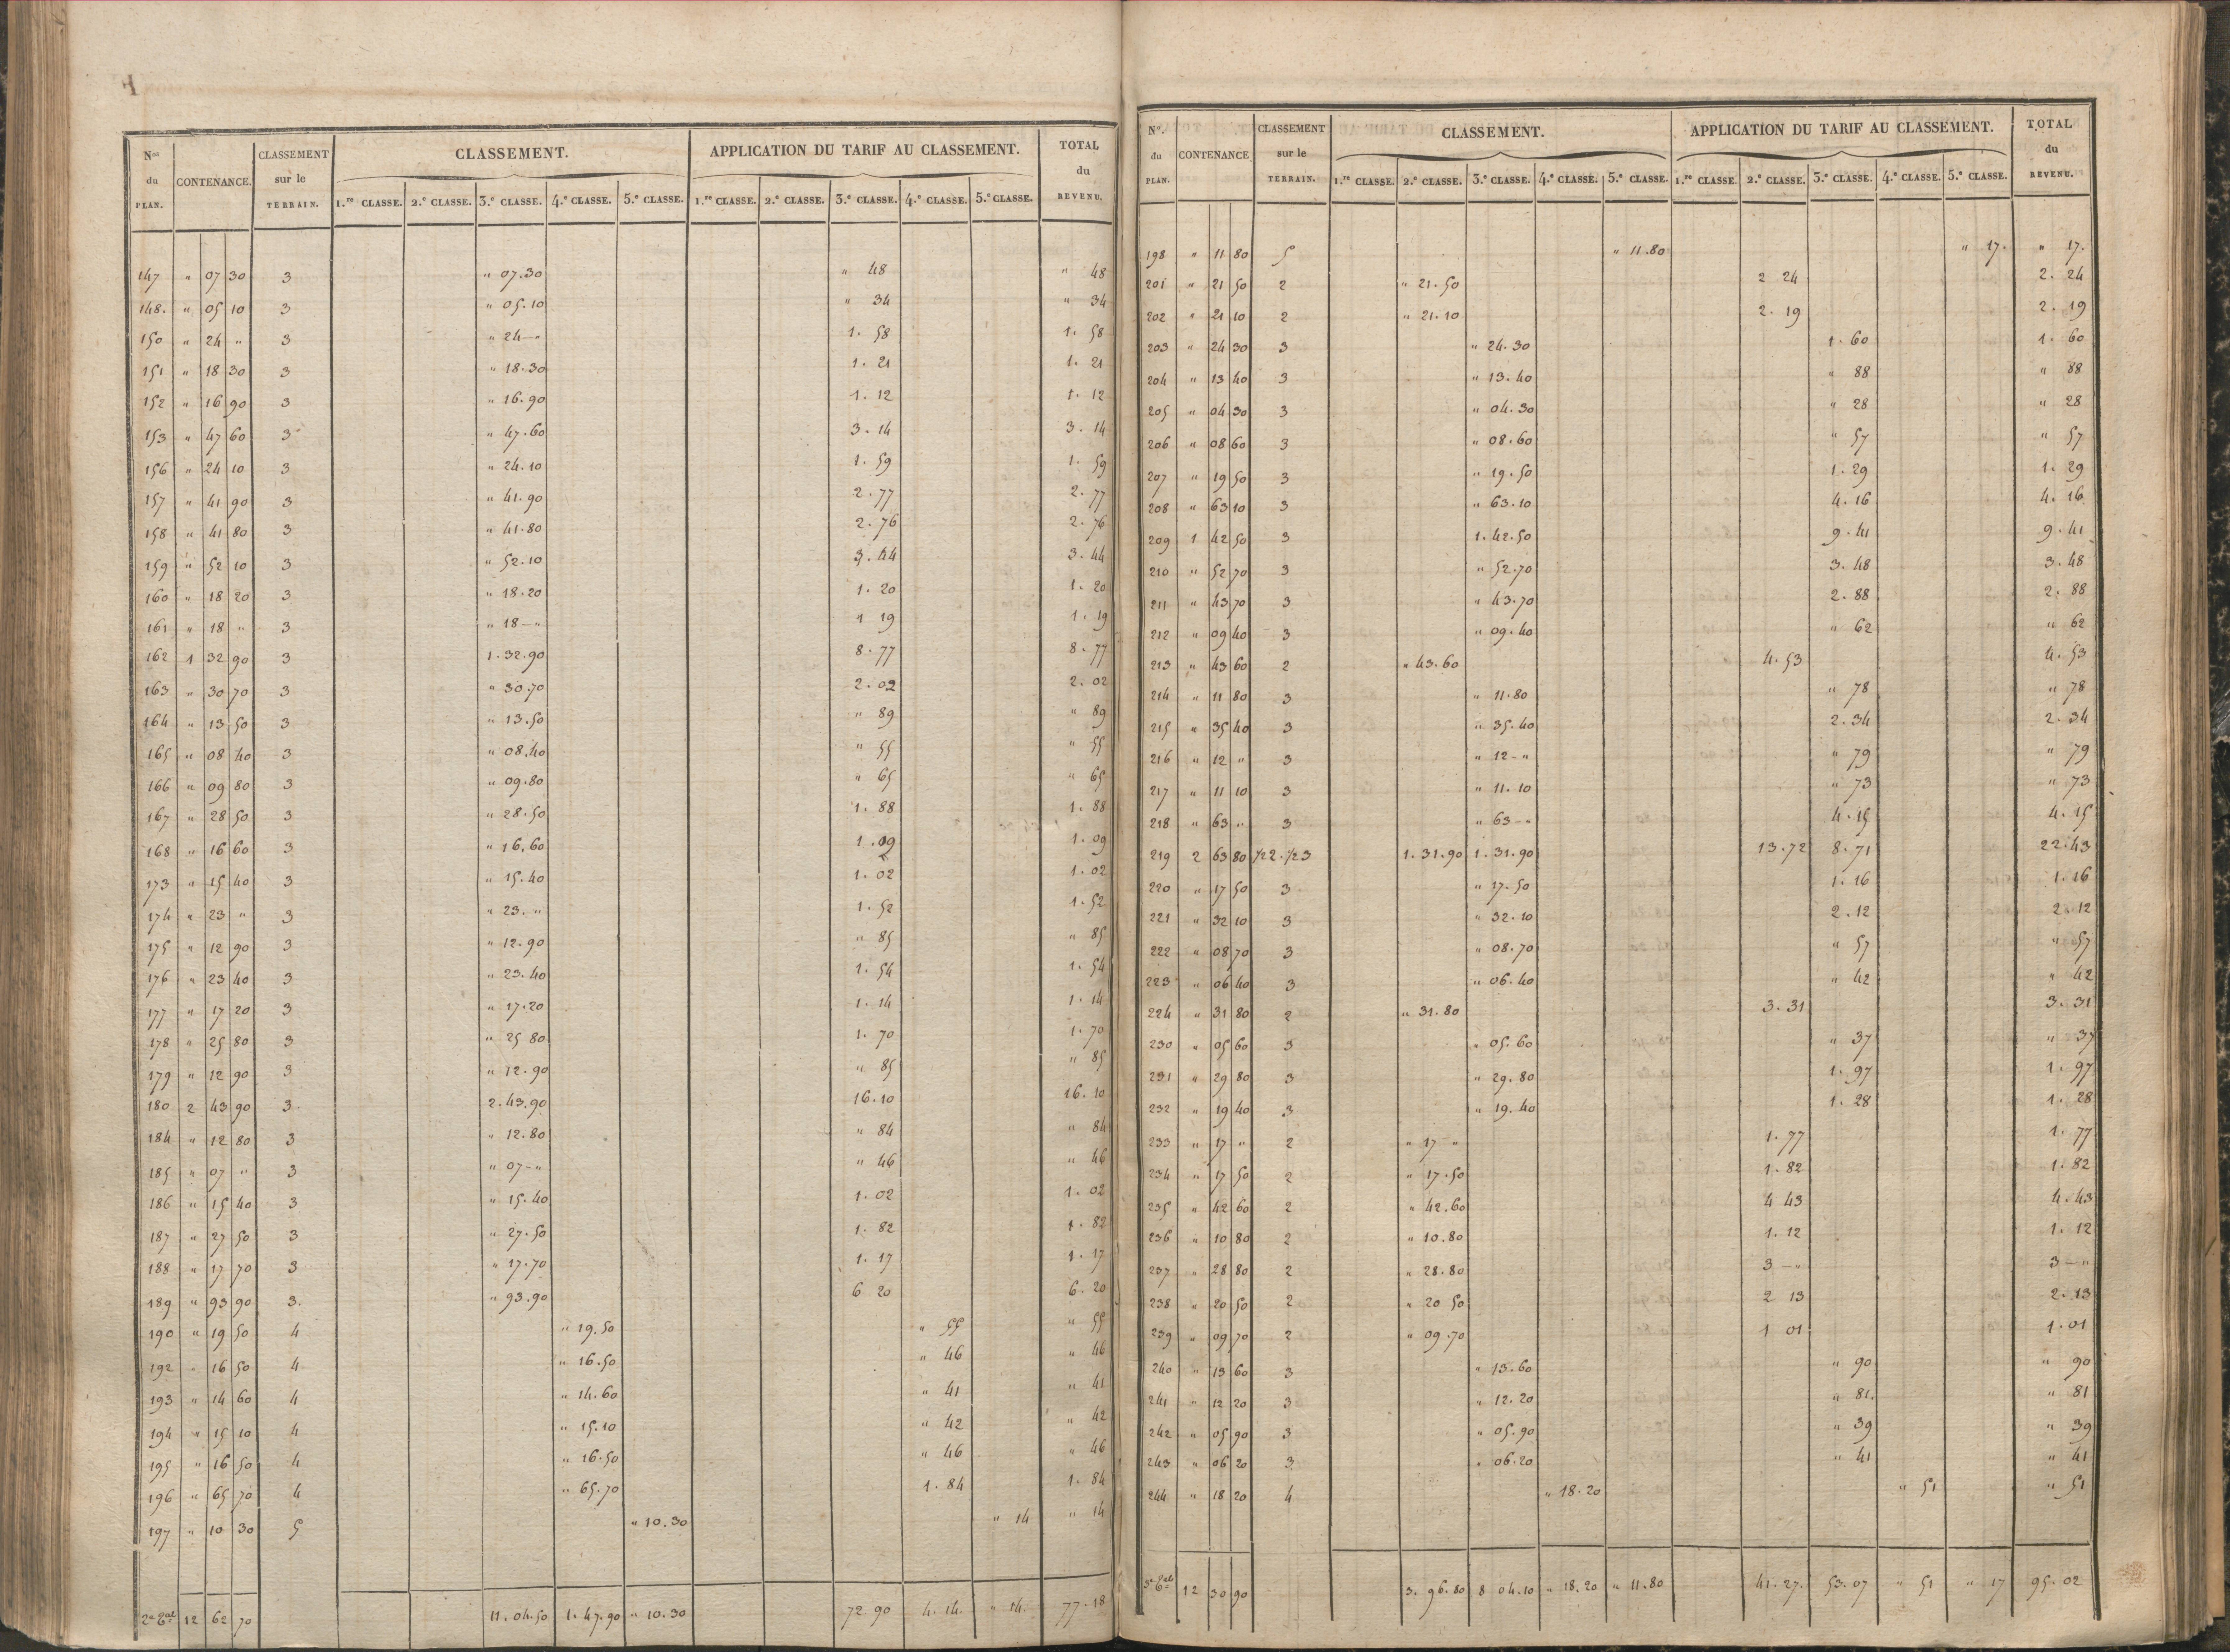 Nos du PLAN. CONTENANCE. CLASSEMENT sur le TERRAIN. CLASSEMENT. APPLICATION DU TARIF AU CLASSEMENT. TOTAL du REVENU.
1.re CLASSE. 2.e CLASSE. 3.e CLASSE. 4.e CLASSE. 5.e CLASSE. 1.re CLASSE. 2.e CLASSE. 3.e CLASSE. 4.e CLASSE. 5.e CLASSE.
147 " 07 30 3 " 07.30 " 48 " 48
148. " 05 10 3 " 05.10 " 34 " 34
150 " 24 " 3 " 24-" 1. 58 1. 58
151 " 18 30 3 " 18.30 1. 21 1. 21
152 " 16 90 3 " 16.90 1. 12 1. 12
153 " 47 60 3 " 47.60 3. 14 3. 14
156 " 24 10 3 " 24.10 1. 59 1. 59
157 " 41 90 3 " 41.90 2. 77 2. 77
158 " 41 80 3 " 41.80 2. 76 2. 76
159 " 52 10 3 " 52.10 3. 44 3. 44
160 " 18 20 3 " 18.20 1. 20 1. 20
161 " 18 " 3 " 18-" 1 19 1. 19
162 1 32 90 3 1.32.90 8. 77 8. 77
163 " 30 70 3 " 30.70 2. 02 2. 02
164 " 13 50 3 " 13.50 " 89 " 89
165 " 08 40 3 " 08.40 " 55 " 55
166 " 09 80 3 " 09.80 " 65 " 65
167 " 28 50 3 " 28.50 1. 88 1. 88
168 " 16 60 3 " 16.60 1. 09 1. 09
173 " 15 40 3 " 15.40 1. 02 1. 02
174 " 23 " 3 " 23. " 1. 52 1. 52
175 " 12 90 3 " 12.90 " 85 " 85
176 " 23 40 3 " 23.40 1. 54 1. 54
177 " 17 20 3 " 17.20 1. 14 1. 14
178 " 25 80 3 " 25 80 1. 70 1. 70
179 " 12 90 3 " 12.90 " 85 " 85
180 2 43 90 3 2.43.90 16.10 16. 10
184 " 12 80 3 " 12.80 " 84 " 84
185 " 07 " 3 " 07-" " 46 " 46
186 " 15 40 3 " 15.40 1. 02 1. 02
187 " 27 50 3 " 27.50 1. 82 1. 82
188 " 17 70 3 " 17.70 1. 17 1. 17
189 " 93 90 3. " 93.90 6 20 6. 20
190 " 19 50 4 " 19.50 " 55 " 55
192 " 16 50 4 " 16.50 " 46 " 46
193 " 14 60 4 " 14.60 " 41 " 41
194 " 15 10 4 " 15.10 " 42 " 42
195 " 16 50 4 " 16.50 " 46 " 46
196 " 65 70 4 " 65.70 1. 84 1. 84
197 " 10 30 5 " 10.30 " 14 " 14
12 62 70 11.04.50 1.47.90 " 10.30 72 90 4.14. " 14. 77.18
Nos du PLAN. CONTENANCE CLASSEMENT sur le TERRAIN. CLASSEMENT. APPLICATION DU TARIF AU CLASSEMENT. TOTAL du REVENU.
1.re CLASSE. 2.e CLASSE. 3.e CLASSE. 4.e CLASSE. 5.e CLASSE. 1.re CLASSE. 2.e CLASSE. 3.e CLASSE. 4.e CLASSE. 5.e CLASSE.
198 " 11 80 5 " 11.80 " 17. " 17.
201 " 21 50 2 " 21.50 2 24 2. 24
202 " 21 10 2 " 21.10 2. 19 2. 19
203 " 24 30 3 " 24.30 1. 60 1. 60
204 " 13 40 3 " 13.40 " 88 " 88
205 " 04 30 3 " 04.30 " 28 " 28
206 " 08 60 3 " 08.60 " 57 " 57
207 " 19 50 3 " 19.50 1. 29 1. 29
208 " 63 10 3 " 63.10 4. 16 4. 16
209 1 42 50 3 1.42.50 9. 41 9. 41
210 " 52 70 3 " 52.70 3. 48 3. 48
211 " 43 70 3 " 43.70 2. 88 2. 88
212 " 09 40 3 " 09.40 " 62 " 62
213 " 43 60 2 " 43.60 4.53 4. 53
214 " 11 80 3 " 11.80 " 78 " 78
215 " 35 40 3 " 35.40 2. 34 2. 34
216 " 12 " 3 " 12-" " 79 " 79
217 " 11 10 3 " 11.10 " 73 " 73
218 " 63 " 3 " 63-" 4. 15 4. 15
219 2 63 80 1/2 2. 1/2 3 1.31.90 1.31.90 13.72 8. 71 22.43
220 " 17 50 3 " 17.50 1. 16 1. 16
221 " 32 10 3 " 32.10 2. 12 2. 12
222 " 08 70 3 " 08.70 " 57 " 57
223 " 06 40 3 " 06.40 " 42 " 42
224 " 31 80 2 " 31.80 3. 31 3. 31
230 " 05 60 3 " 05.60 " 37 " 37
231 " 29 80 3 " 29.80 1. 97 1. 97
232 " 19 40 3 " 19.40 1. 28 1. 28
233 " 17 " 2 " 17 " 1. 77 1. 77
234 " 17 50 2 " 17.50 1. 82 1. 82
235 " 42 60 2 " 42.60 4 43 4. 43
236 " 10 80 2 " 10.80 1. 12 1. 12
237 " 28 80 2 " 28.80 3 - " 3 - "
238 " 20 50 2 " 20 50 2 13 2. 13
239 " 09 70 2 " 09.70 1 01 1. 01
240 " 13 60 3 " 13.60 " 90 " 90
241 " 12 20 3 " 12.20 " 81. " 81
242 " 05 90 3 " 05.90 " 39 " 39
243 " 06 20 3 " 06.20 " 41 " 41
244 " 18 20 4 " 18.20 " 51 " 51
12 30 90 3. 96.80 8 04.10 " 18.20 " 11.80 41.27. 53.07 " 51 " 17 95.02